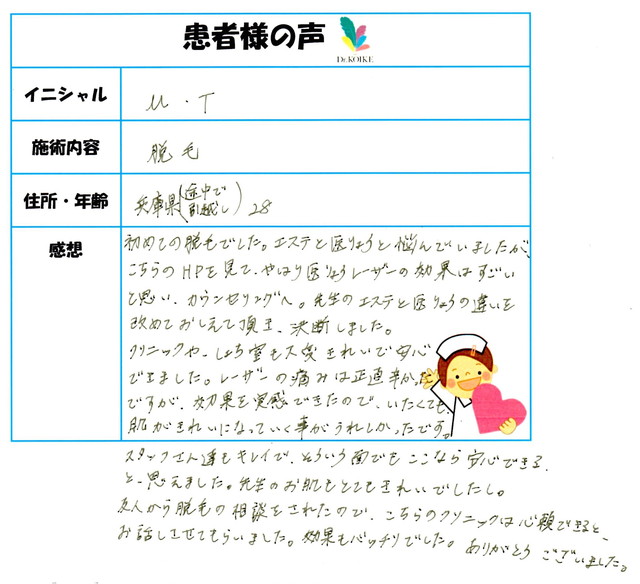 患者様の声
Dr.KOIKE
イニシャル
M・T
施術内容
脱毛
住所・年齢
兵庫県(途中で引越し) 28
感想
初めての脱毛でした。エステと医りょうと悩んでいましたが、
こちらのHPを見て、やはり医りょうレーザーの効果はすごい
と思い、カウンセリングへ。先生のエステと医りょうの違いを
改めておしえて頂き、決断しました。
クリニックや、しょち室も大変きれいで安心
できました。レーザーの痛みは正直辛かった
ですが、効果を実感できたので、いたくても、
肌がきれいになっていく事がうれしかったです。
スタッフさん達もキレイで、そういう面でもここなら安心できる、
と、思えました。先生のお肌もとてもきれいでしたし。
友人から脱毛の相談をされたので、こちらのクリニックは心頼できると、
お話しさせてもらいました。効果もバッチリでした。ありがとうございました。